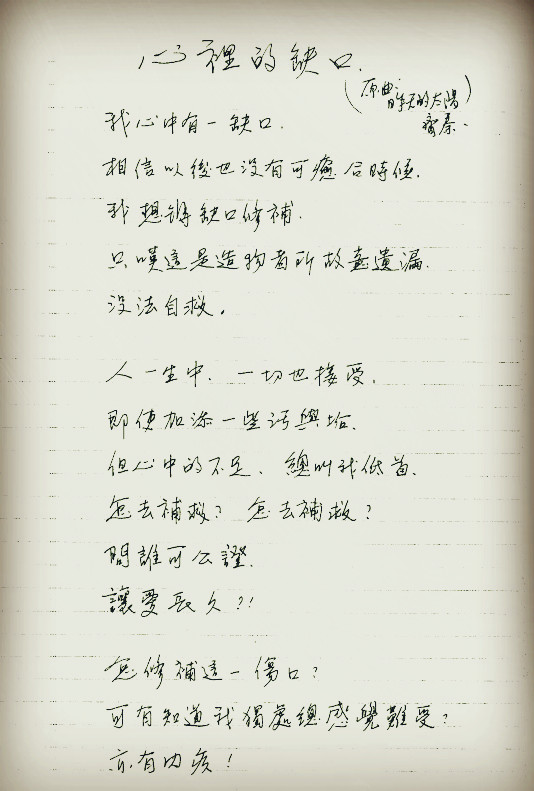 心裡的缺口.
(原曲:昨天的太陽
齊秦.)
我心中有一缺口.
相信以後也没有可癒合時候.
我想将缺口修補.
只嘆這是造物者所故意遺漏.
没法自救。
人一生中.一切也接受.
即使加添一些污與垢.
但心中的不足.總叫我低首.
怎去補救?怎去補救?
問誰可公證.
讓愛長久?!
怎修補這一傷口?
可有知道我獨處總感覺難受?
亦有内疚!